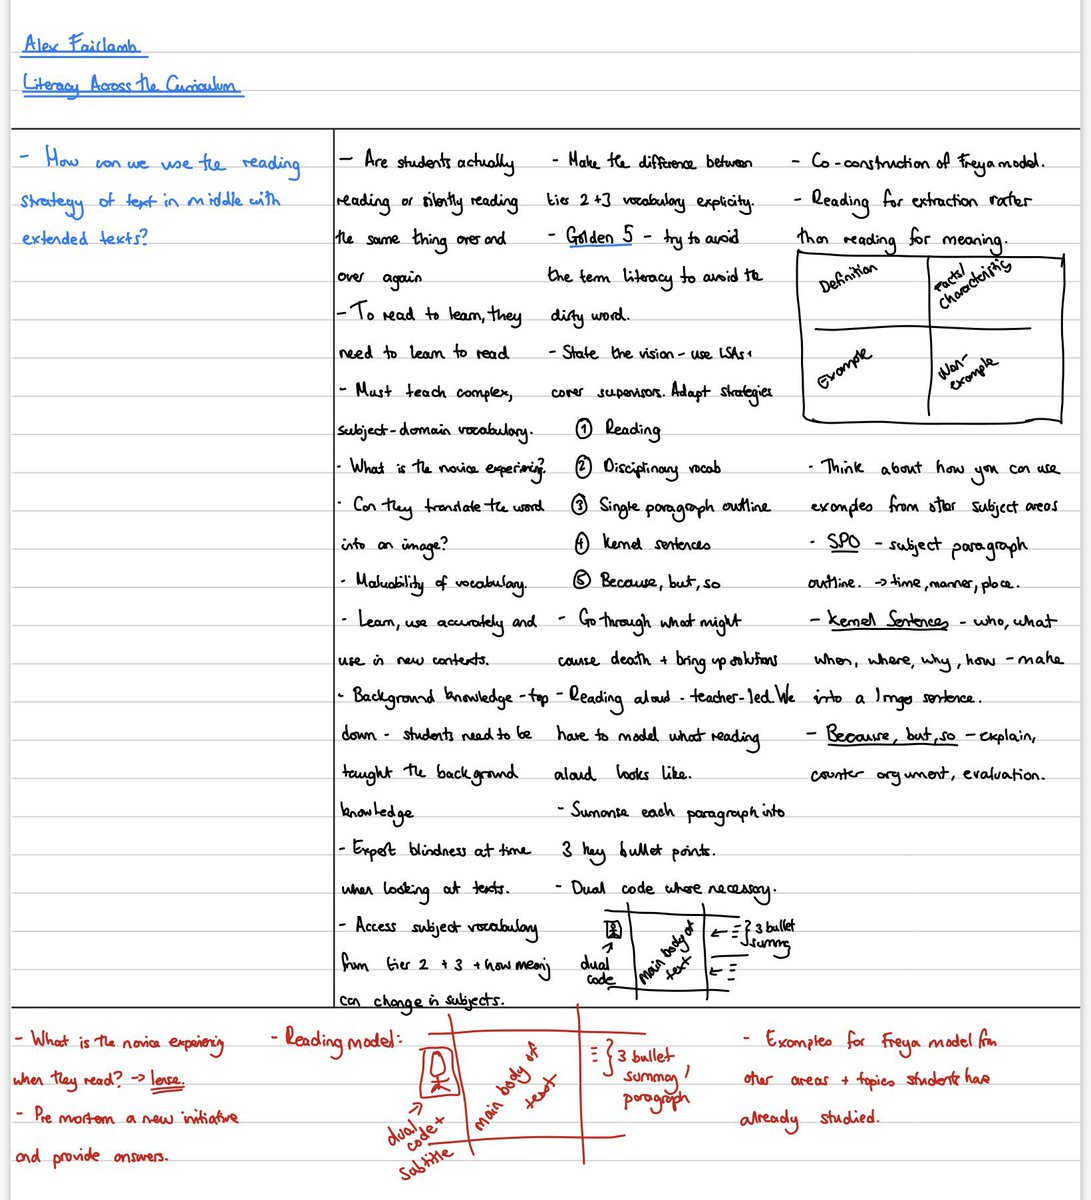 Alex Fairlamb
Literacy Across the Curriculum
- How can we use the reading
strategy of text in middle with
extended texts?
- Are students actually
reading or silently reading
the same thing over and
over again
- To read to learn, they
need to learn to read
- Must teach complex,
subject-domain vocabulary.
- What is the novice experiencing?
- Can they translate the word
into an image?
- Maluability of vocabulary.
- Learn, use accurately and
use in new contexts.
- Background knowledge - top
down - students need to be
taught the background
knowledge
- Expert blindness at time
when looking at texts.
- Access subject vocabulary
from tier 2 + 3 + how meaning
can change in subjects.
- Make the difference between
tier 2 + 3 vocabulary explicity.
- Golden 5 - try to avoid
the term literacy to avoid the
dirty word.
- State the vision - use LSAs +
cover supervisors. Adapt strategies
① Reading
② Disciplinary vocab
③ Single paragraph outline
④ Kernel sentences
⑤ Because, but, so
- Go through what might
cause death + bring up solutions
- Reading aloud - teacher-led. We
have to model what reading
aloud looks like.
- Summarise each paragraph into
3 key bullet points.
- Dual code where necessary.
dual
code
main body of
text
3 bullet
summary
- Co-construction of Freya model.
- Reading for extraction rather
than reading for meaning.
Definition
Facts/
characteristic
Example
Non-
example
- Think about how you can use
examples from other subject areas
- SPO - subject paragraph
outline. → time, manner, place.
- Kernel Sentences - who, what
when, where, why, how - make
into a longer sentence.
- Because, but, so - explain,
counter argument, evaluation.
- What is the novice experiencing
when they read? → lense.
- Pre mortem a new initiative
and provide answers.
- Reading model:
dual
code +
subtitle
main body of
text
3 bullet
summary /
paragraph
- Examples for Freya model from
other areas + topics students have
already studied.